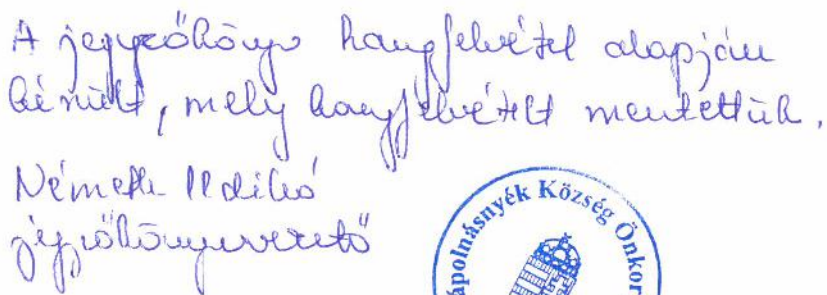 A jegyzőkönyv hangfelvétel alapján
készült, mely hangfelvételt mentettük.
Németh Ildikó
jegyzőkönyvvezető
ápolnásnyék Község Önkor